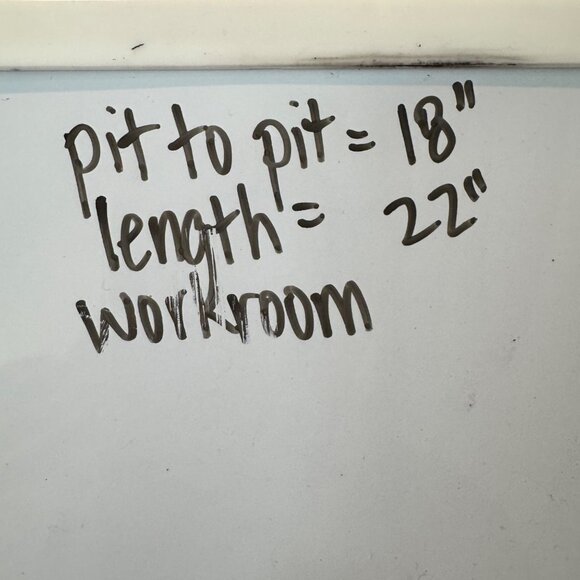 pit to pit = 18"
length = 22"
workroom